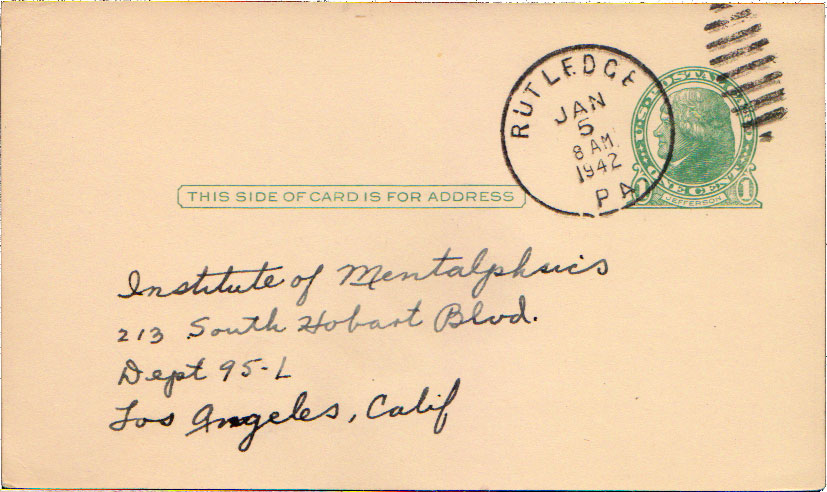 RUTLEDGE
JAN
5
8 AM.
1942
PA
U.S. POSTAL CARD
ONE CENT
1 1
JEFFERSON
THIS SIDE OF CARD IS FOR ADDRESS
Institute of Mentalphsics
213 South Hobart Blvd.
Dept 95-L
Los Angeles, Calif